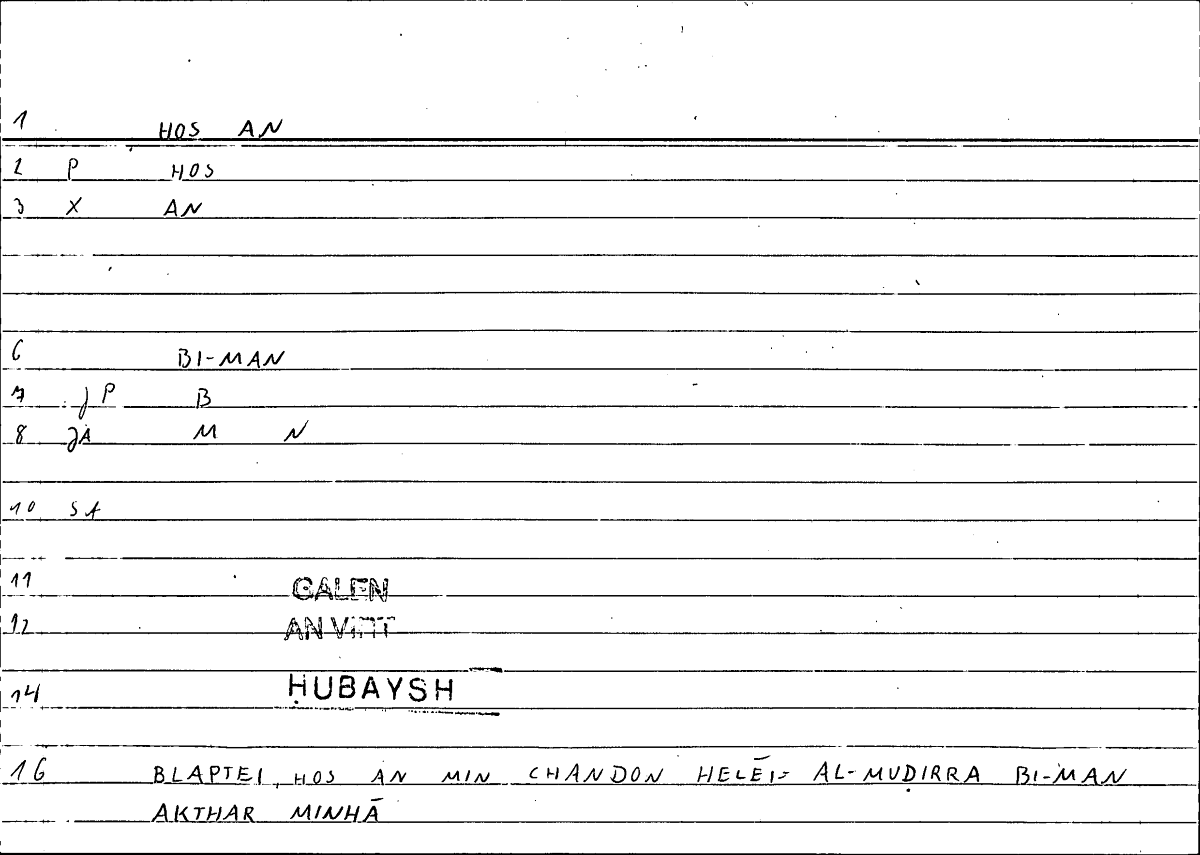 1 HOS AN
2 P HOS
3 X AN
6 BI-MAN
7 JP B
8 JA M N
10 SA
11 GALEN
12 AN VIRT
14 ḤUBAYSH
16 BLAPTEI, HOS AN MIN CHANDON HELĒI= AL-MUḌIRRA BI-MAN
AKTHAR MINHĀ